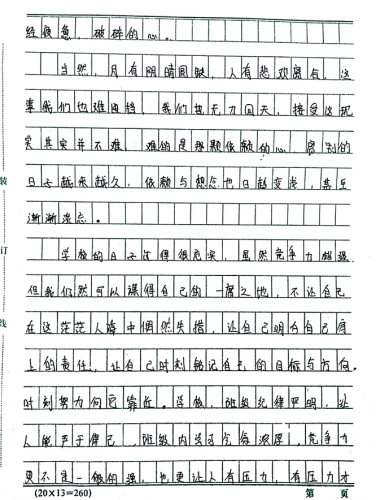 经疲惫，破碎的心。
当然，月有阴晴圆缺，人有悲欢离合，这
事我们也难阻挡，我们也无力回天，接受这现
实其实并不难，难的是那颗依赖的心，离别的
日子越来越久，依赖与想念也日趋变浅，甚至
渐渐淡忘。
学校的日子过得很充实，虽然竞争力超强
但我仍然可以谋得自己的一席之地，不让自己
在这茫茫人海中惘然失措，让自己明白自己肩
上的责任，让自己时刻铭记自己的目标与方向。
时刻努力向它靠近。学校，班级纪律严明，让
人能严于律己，班级内学习气氛浓厚，竞争力
更不是一般的强，也更让人有压力，有压力才
装
订
线
(20×13=260)
第 页